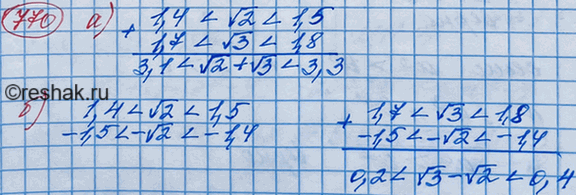 770 а) 1,4 < √2 < 1,5
+ 1,7 < √3 < 1,8
3,1 < √2 + √3 < 3,3
©reshak.ru
б) 1,4 < √2 < 1,5
-1,5 < -√2 < -1,4
+ 1,7 < √3 < 1,8
-1,5 < -√2 < -1,4
0,2 < √3 - √2 < 0,4